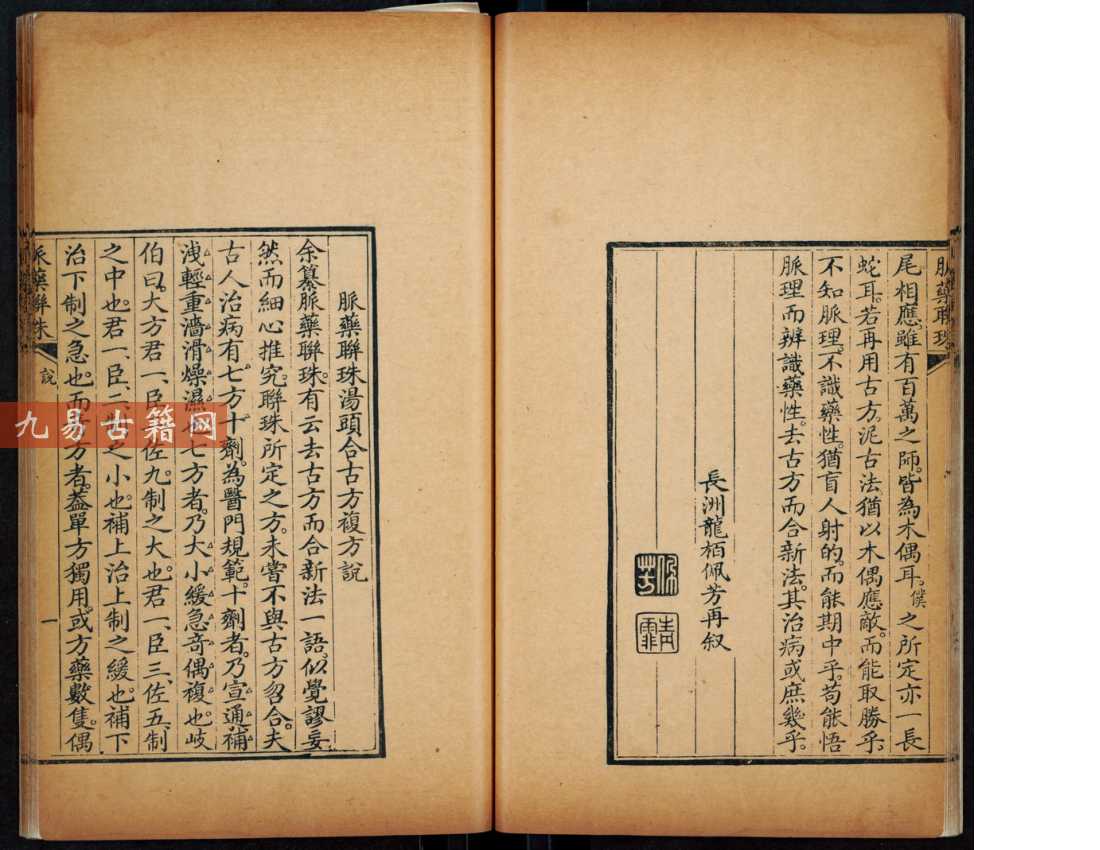 脈藥聯珠
尾相應。雖有百萬之師。皆為木偶耳。僕之所定亦一長
蛇耳。若再用古方。泥古法。猶以木偶應敵。而能取勝乎。
不知脈理。不識藥性。猶盲人射的。而能期中乎。苟能悟
脈理而辨識藥性。去古方而合新法。其治病或庶幾乎。
長洲龍栢佩芳再叙
佩芳
青霏
脈藥聯珠湯頭合古方複方說
余纂脈藥聯珠。有云去古方而合新法一語。似覺謬妄
然而細心推究。聯珠所定之方。未嘗不與古方忽合。夫
古人治病有七方十劑。為醫門規範。十劑者。乃宣通補
洩輕重濇滑燥濕七方者。乃大小緩急奇偶複也。岐
伯曰。大方君一、臣佐九。制之大也。君一、臣三、佐五、制
之中也。君一、臣二、制之小也。補上治上制之緩也。補下
治下制之急也。而方者。蓋單方獨用。或方藥數隻。偶
脈藥聯珠
說
一
九易古籍网